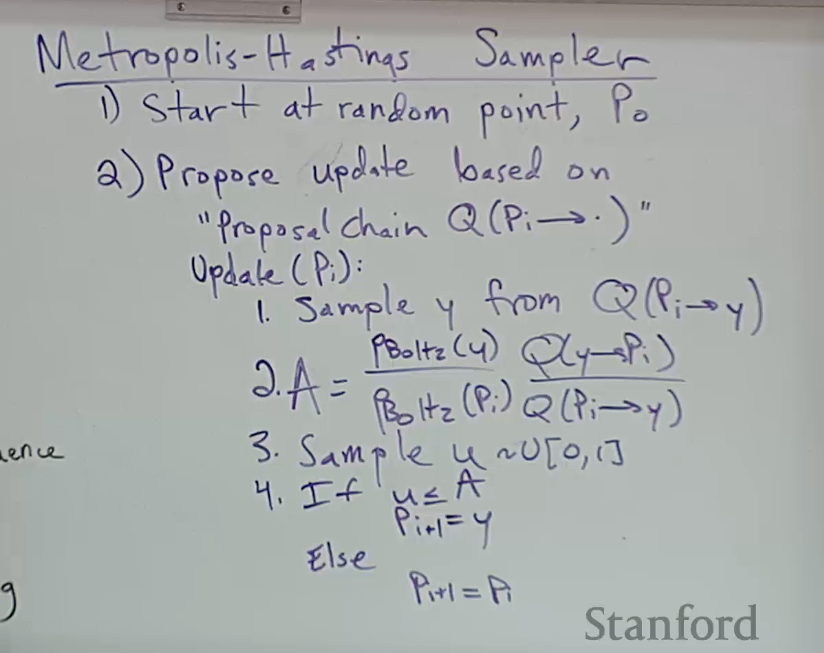 Metropolis-Hastings Sampler
1) Start at random point, P₀
2) Propose update based on
"Proposal chain Q(Pi→·)"
Update(Pi):
1. Sample y from Q(Pi→y)
2. A = pBoltz(y) / pBoltz(Pi) Q(y→Pi) / Q(Pi→y)
ience
3. Sample u ~U[0,1]
4. If u≤A
Pi+1=y
Else
g
Pi+1=Pi
Stanford